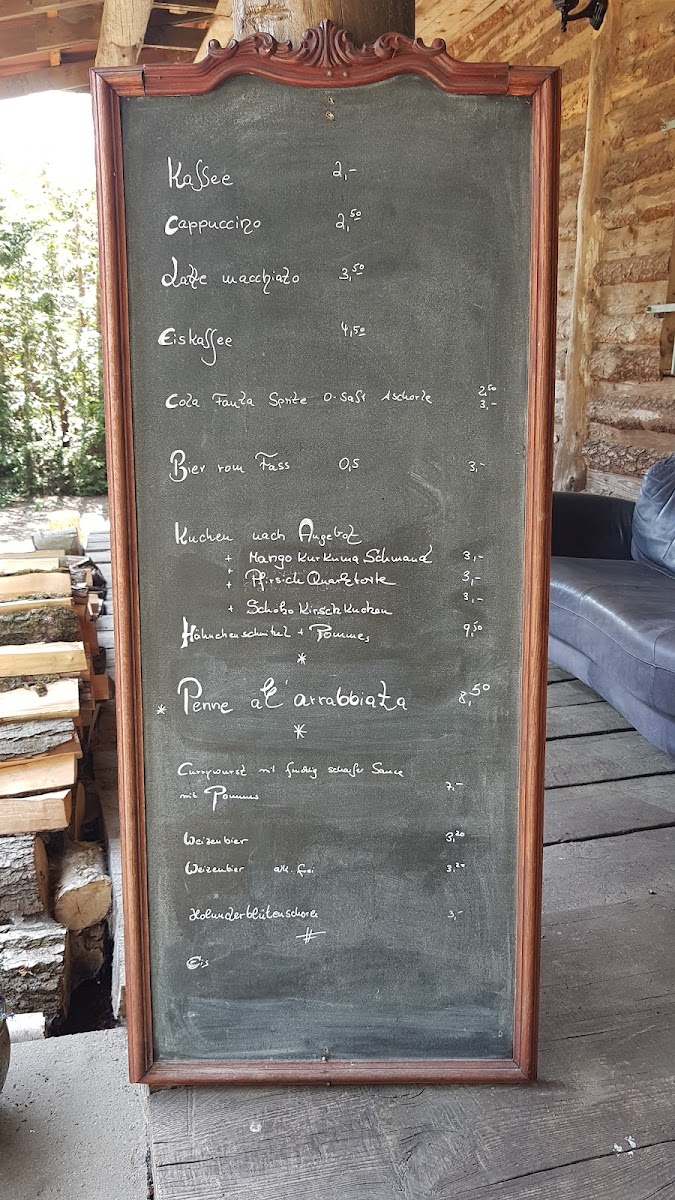 Kaffee 2,-
Cappuccino 2,50
Latte macchiato 3,50
Eiskaffee 4,50
Cola Fanta Sprite O-Saft Aschorle 2,50
3,-
Bier vom Fass 0,5 3,-
Kuchen nach Angebot
+ Mango Kurkuma Schmand 3,-
+ Pfirsich Quarktorte 3,-
+ Schoko Kirschkuchen 3,-
Hähnchenschnitzel + Pommes 9,50
*
* Penne all' arrabbiata 8,50
*
Currywurst mit fruchtig scharfer Sauce
mit Pommes 7,-
Weizenbier 3,20
Weizenbier alk. frei 3,20
Holunderblütenschorle 3,-
#
Eis